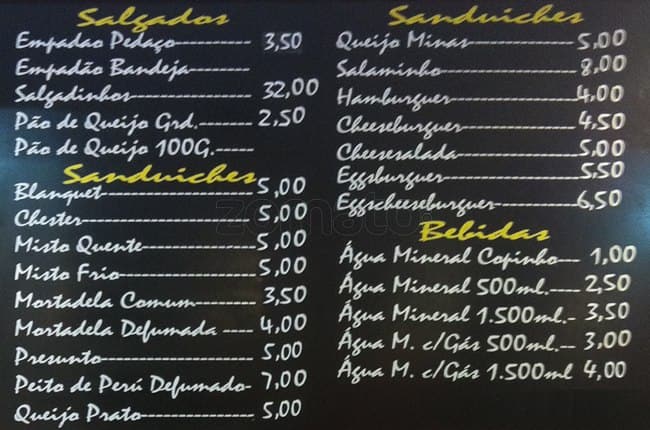 Salgados
Empadao Pedaço----------- 3,50
Empadão Bandeja--------
Salgadinhos---------------- 32,00
Pão de Queijo Grd.------ 2,50
Pão de Queijo 100G.-----
Sanduiches
Blanquet-------------------- 5,00
Chester--------------------- 5,00
Misto Quente-------------- 5,00
Misto Frio----------------- 5,00
Mortadela Comum-------- 3,50
Mortadela Defumada ---- 4,00
Presunto------------------- 5,00
Peito de Perú Defumado- 7,00
Queijo Prato-------------- 5,00
Sanduiches
Queijo Minas-------------- 5,00
Salaminho------------------ 8,00
Hamburguer---------------- 4,00
Cheeseburguer------------- 4,50
Cheesesalada--------------- 5,00
Eggsburguer---------------- 5,50
Eggscheeseburguer--------- 6,50
Bebidas
Água Mineral Copinho--- 1,00
Água Mineral 500ml.---- 2,50
Água Mineral 1.500ml.- 3,50
Água M. c/Gás 500ml.-- 3,00
Água M. c/Gás 1.500ml 4,00
zomato